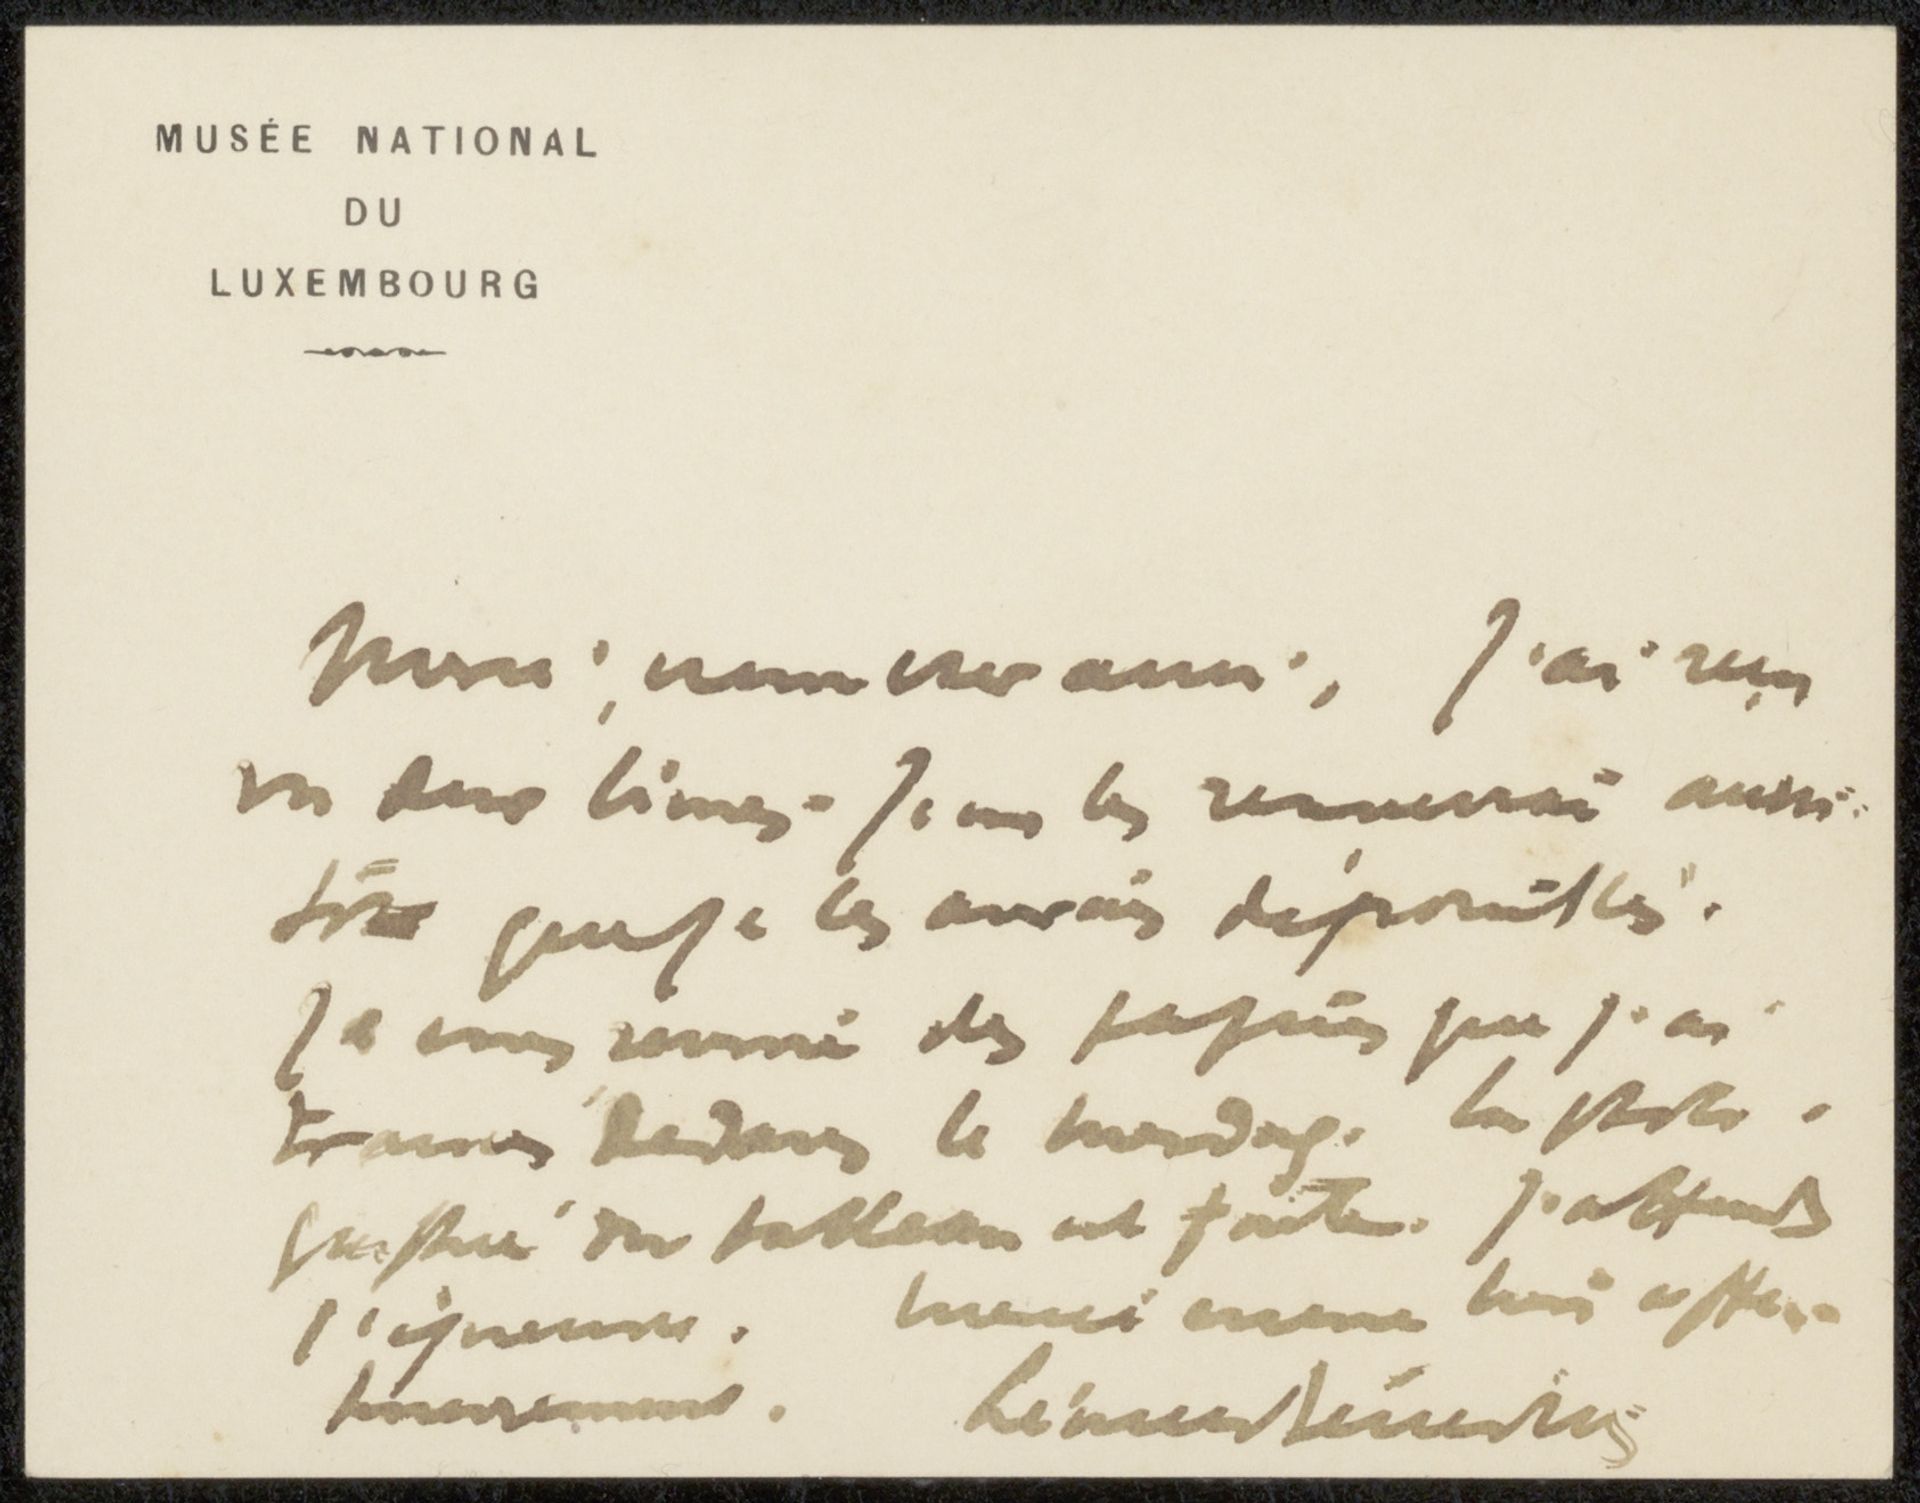 MUSÉE NATIONAL
DU
LUXEMBOURG
Merci, mon cher ami, J'ai reçu
vos deux livres. Je vous les renverrai aussi-
tôt que je les aurais dépouillés.
Je vous renvoie des papiers que j'ai
trouvés dedans le La photo-
graphie du tableau est faite. J'attends
l'épreuve. Merci encore bien affec-
tueusement. Léonce Bénédite